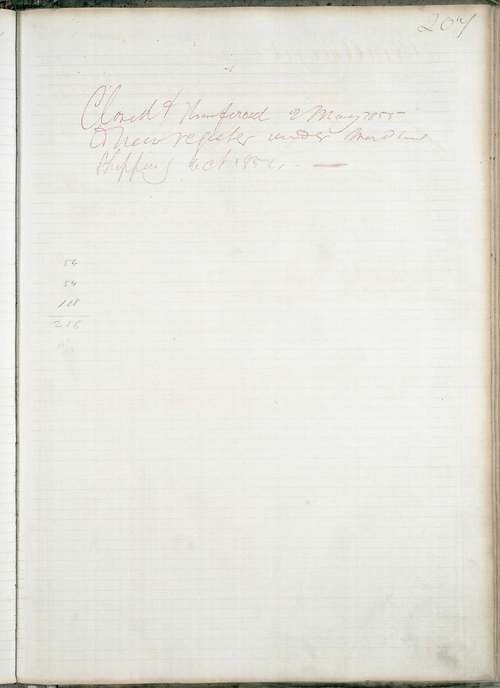 207
Closed & Transfered 2 May 1855
to new register under
Shipping Act 1854. —
54
54
108
216